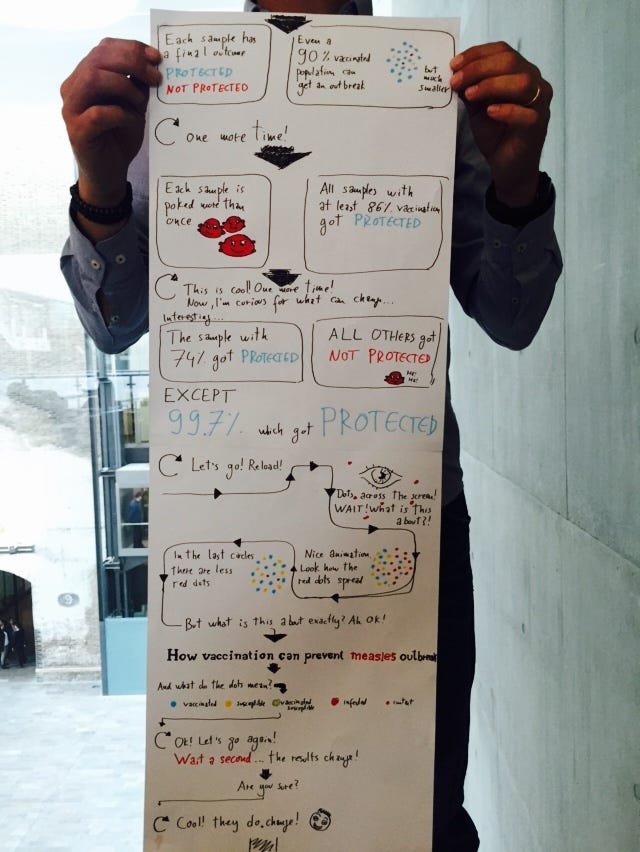 Each sample has
a final outcome
PROTECTED
NOT PROTECTED
Even a
90% vaccinated
population can
get an outbreak
but
much
smaller
One more time!
Each sample is
poked more than
once
All samples with
at least 86% vaccination
got PROTECTED
This is cool! One more time!
Now, I'm curious for what can change...
Interesting...
The sample with
74% got PROTECTED
ALL OTHERS got
NOT PROTECTED
EXCEPT
99.7% which got PROTECTED
Let's go! Reload!
Dots across the screen!
WAIT! What is this
about?!
In the last circles
there are less
red dots
Nice animation
Look how the
red dots spread
But what is this about exactly? Ah OK!
How vaccination can prevent measles outbreak
And what do the dots mean?
vaccinated
susceptible
vaccinated
susceptible
infected
contact
Ok! Let's go again!
Wait a second... the results change!
Are you sure?
Cool! they do change!